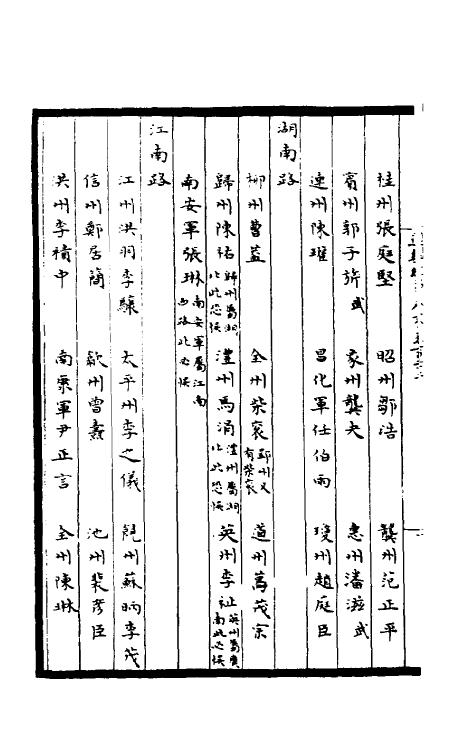 桂州張庭堅 昭州鄒浩 龔州范正平
賓州郭子旂武 象州龔夬 惠州潘滋武
連州陳瓘 昌化軍任伯雨 瓊州趙庭臣
湖南路
柳州曹蓋 全州柴袞鄂州又有柴袞 道州萬茂宗
歸州陳祐歸州屬湖北此恐悞 澧州馬涓澧州屬湖北此恐悞 英州李祉英州屬廣南此必悞
南安軍張琳南安軍屬江南西路此必悞
江南路
江州洪羽李驥 太平州李之儀 饒州蘇昞李茂
信州鄭居簡 歙州曾燾 池州裴彥臣
洪州李積中 南康軍尹正言 全州陳琳